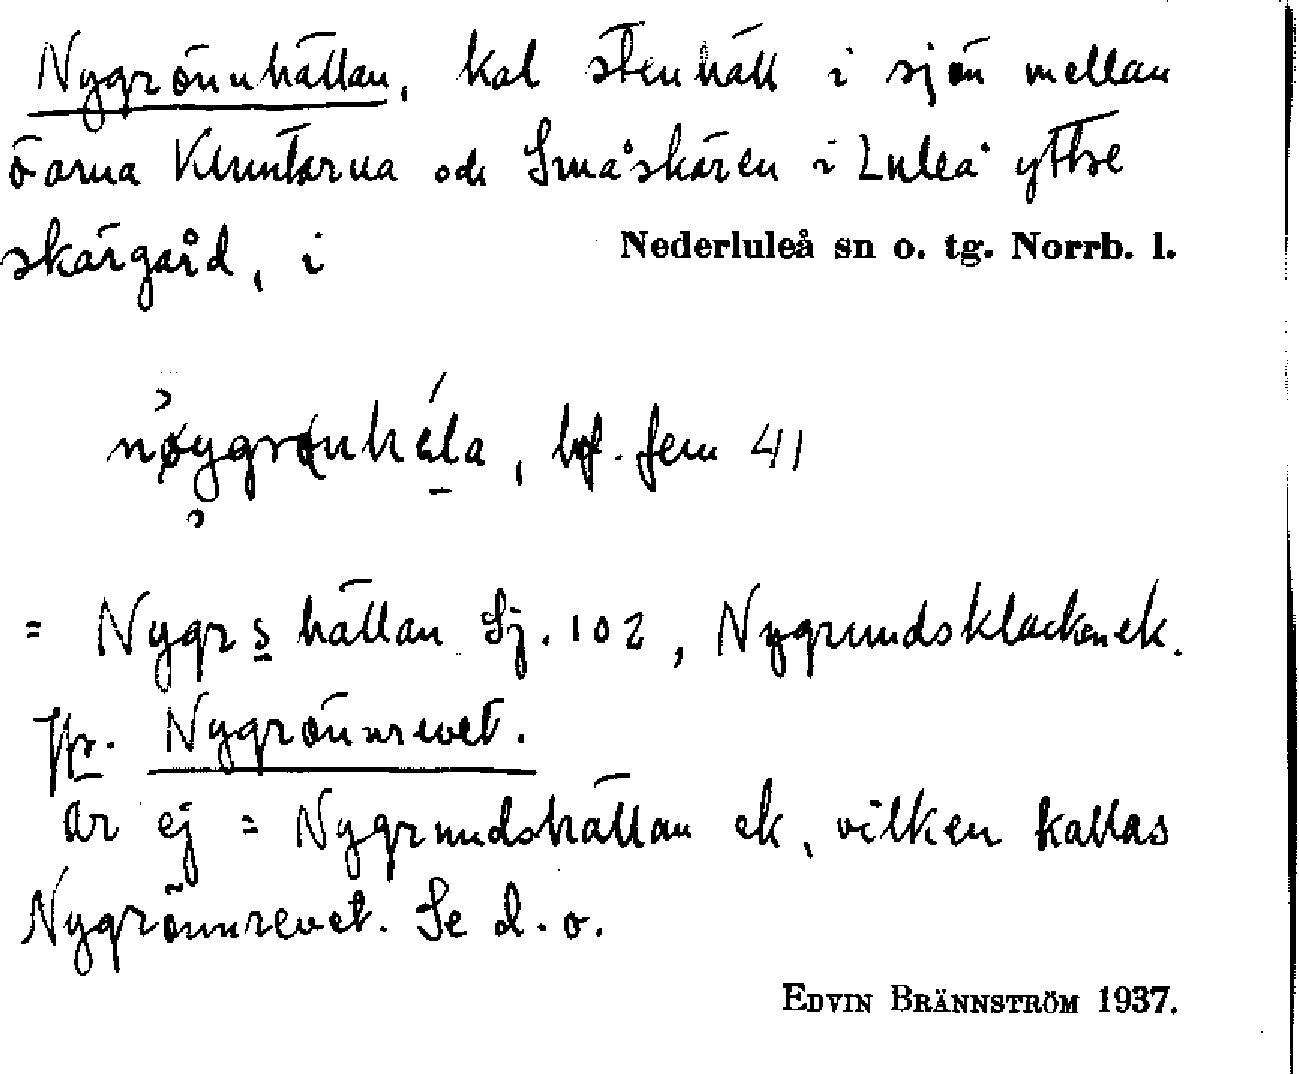 Nygrönnhällan, kal stenhäll i sjön mellan
öarna Kluntarna och Småskären i Luleå yttre
skärgård, i Nederluleå sn o. tg. Norrb. l.
bf. fem 41
= Nygrs hällan Sj. 102, Nygrundsklacken ek.
Jfr. Nygrönnrevet.
är ej = Nygrundshällan ek, vilken kallas
Nygrönnrevet. Se d. o.
EDVIN BRÄNNSTRÖM 1937.